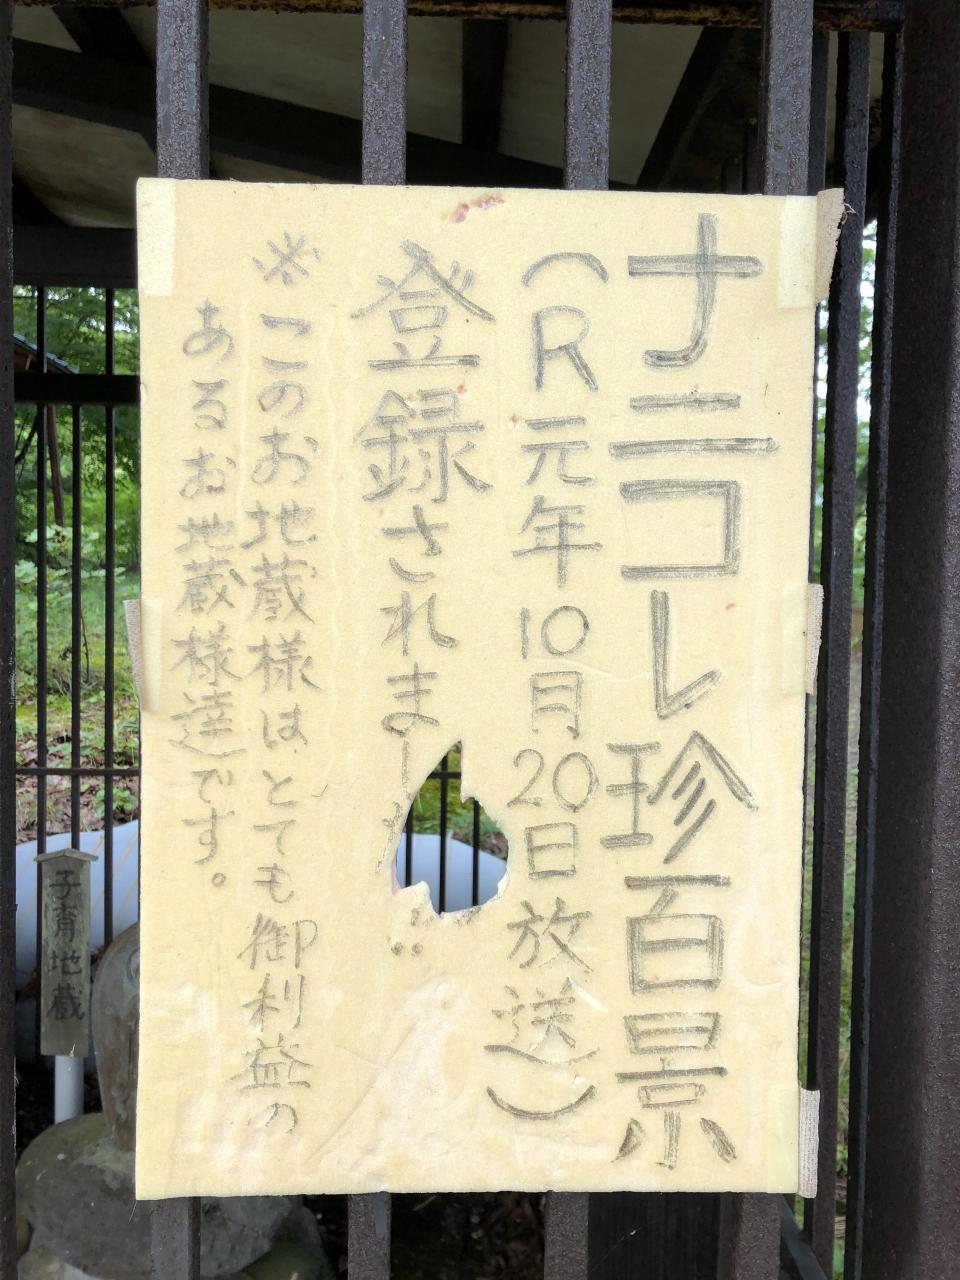 ナニコレ珍百景
（R元年10月20日放送）
登録されました‼
※このお地蔵様はとても御利益の
あるお地蔵様達です。
子育地蔵